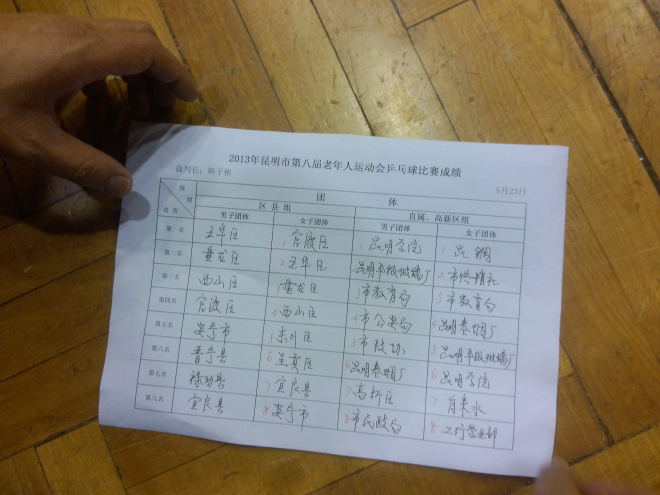 2013年昆明市第八届老年人运动会乒乓球比赛成绩
裁判长：郭子彬 6月23日
团 体
区县组 直属、高新区组
名次 男子团体 女子团体 男子团体 女子团体
第一名 五华区 1官渡区 1昆明学院 1昆钢
第二名 盘龙区 2五华区 昆明平板玻璃厂 2市供销社
第三名 西山区 盘龙区 3市教育局 3市教育局
第四名 官渡区 4西山区 4市公安局 4昆明卷烟厂
第五名 安宁市 5东川区 5市 5昆明平板玻璃厂
第六名 晋宁县 6呈贡区 6昆明卷烟厂 6昆明学院
第七名 禄劝县 7宜良县 7高新区 7自来水
第八名 宜良县 8安宁市 8市民政局 8工行营业部